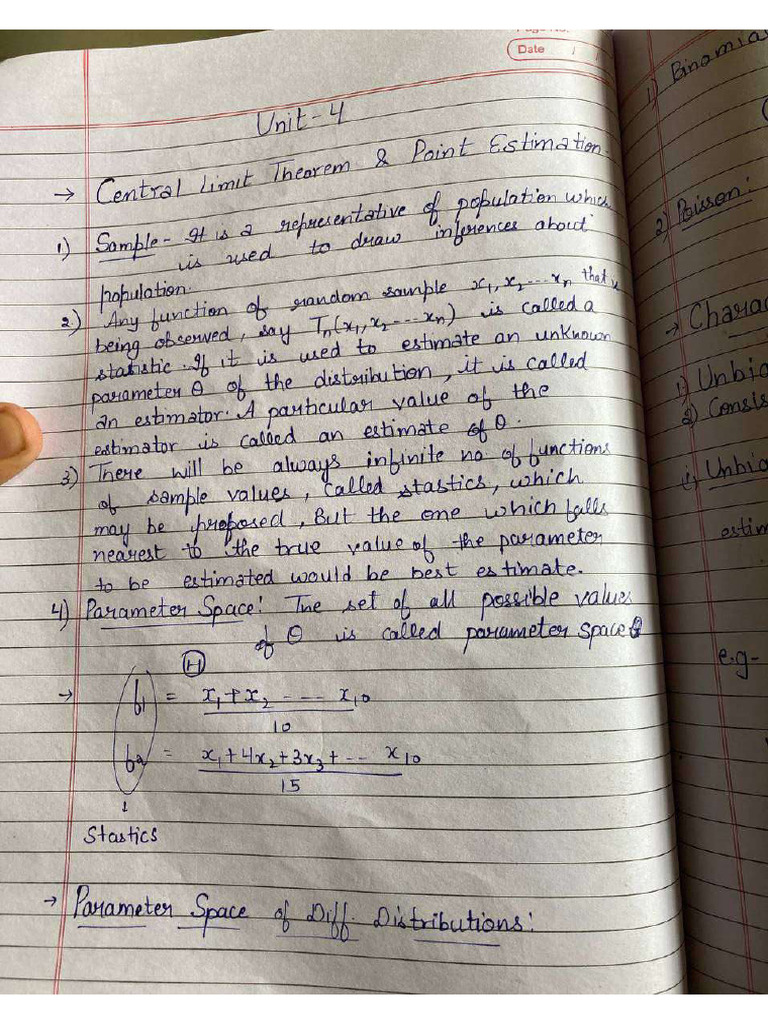 Date / /
Unit-4
→ Central Limit Theorem & Point Estimation.
1) Sample - It is a representative of population which
is used to draw inferences about
population.
2) Any function of random sample x₁, x₂ --- xₙ that is
being observed, say Tₙ(x₁, x₂ --- xₙ) is called a
statistic. If it is used to estimate an unknown
parameter θ of the distribution, it is called
an estimator. A particular value of the
estimator is called an estimate of θ.
3) There will be always infinite no of functions
of sample values, called stastics, which
may be proposed, But the one which falls
nearest to the true value of the parameter
to be estimated would be best estimate.
4) Parameter Space: The set of all possible values
of θ is called parameter space
Ⓗ
→ = x₁ + x₂ --- x₁₀
10
= x₁ + 4x₂ + 3x₃ + -- x₁₀
15
↓
Stastics
→ Parameter Space of Diff. Distributions:
1)
2) Poisson:
→
1)
2)
i)
e.g-